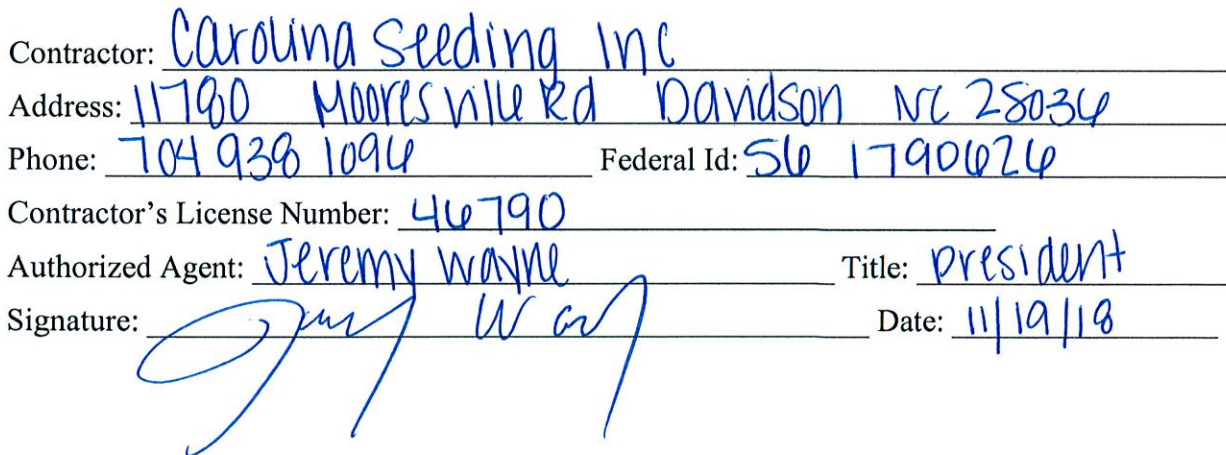 Contractor: Carolina Seeding Inc
Address: 11780 Mooresville Rd Davidson NC 28036
Phone: 704 938 1096 Federal Id: 56 1790626
Contractor's License Number: 46790
Authorized Agent: Jeremy Wayne Title: president
Signature: Date: 11/19/18